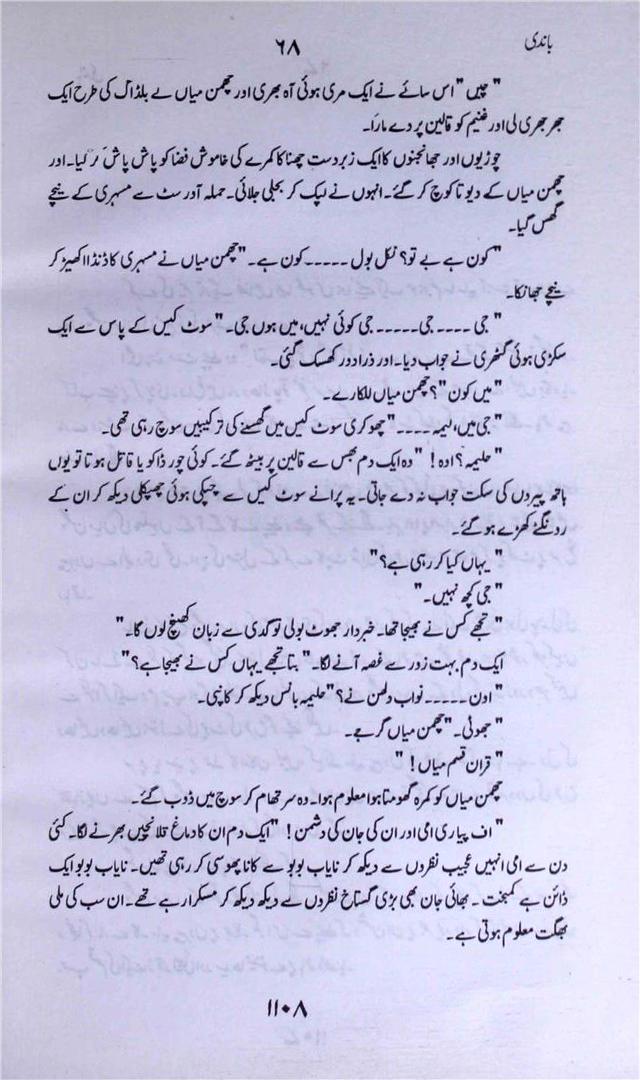 باندی
۶۸
" چیں " اس سائے نے ایک مری ہوئی آہ بھری اور چھمن میاں بے بلڈاگ کی طرح ایک
جھر جھری لی اور غنیم کو قالین پر دے مارا۔
چوڑیوں اور جھانجنوں کا ایک زبردست چھناکا کمرے کی خاموش فضا کو پاش پاش کر گیا۔ اور
چھمن میاں کے دیوتا کوچ کر گئے۔ انہوں نے لپک کر بجلی جلائی۔ حملہ آور سٹ سے مسہری کے نیچے
گھس گیا۔
" کون ہے بے تو؟ نکل بول ۔۔۔۔۔ کون ہے۔ " چھمن میاں نے مسہری کا ڈنڈا اکھیڑ کر
نیچے جھانکا۔
" جی ۔۔۔۔ جی ۔۔۔۔۔ جی کوئی نہیں، میں ہوں جی۔ " سوٹ کیس کے پاس سے ایک
سکڑی ہوئی گٹھری نے جواب دیا۔ اور ذرا دور کھسک گئی۔
" میں کون "؟ چھمن میاں للکارے۔
" جی میں، لیمہ ۔۔۔۔ " چھوکری سوٹ کیس میں گھسنے کی ترکیبیں سوچ رہی تھی۔
" حلیمہ؟ اوہ! " وہ ایک دم بھس سے قالین پر بیٹھ گئے۔ کوئی چور ڈاکو یا قاتل ہوتا تو یوں
ہاتھ پیروں کی سکت جواب نہ دے جاتی۔ یہ پرانے سوٹ کیس سے چپکی ہوئی چھپکلی دیکھ کر ان کے
رونگٹے کھڑے ہو گئے۔
" یہاں کیا کر رہی ہے؟ "
" جی کچھ نہیں۔ "
" تجھے کس نے بھیجا تھا۔ خبردار جھوٹ بولی تو گدی سے زبان کھینچ لوں گا۔ "
ایک دم بہت زور سے غصہ آنے لگا۔ " بتا تجھے یہاں کس نے بھیجا ہے؟ "
" اون ۔۔۔۔۔ نواب دلھن نے؟ " حلیمہ بانس دیکھ کر کانپی۔
" جھوٹی۔ " چھمن میاں گرجے۔
" قران قسم میاں! "
چھمن میاں کو کمرہ گھومتا ہوا معلوم ہوا۔ وہ سر تھام کر سوچ میں ڈوب گئے۔
" اف پیاری امی اور ان کی جان کی دشمن! " ایک دم ان کا دماغ قلانچیں بھرنے لگا۔ کئی
دن سے امی انہیں عجیب نظروں سے دیکھ کر نایاب بوبو سے کانا پھوسی کر رہی تھیں۔ نایاب بوبو ایک
ڈائن ہے کمبخت۔ بھائی جان بھی بڑی گستاخ نظروں سے دیکھ دیکھ کر مسکرا رہے تھے۔ ان سب کی ملی
بھگت معلوم ہوتی ہے۔
۱۱۰۸